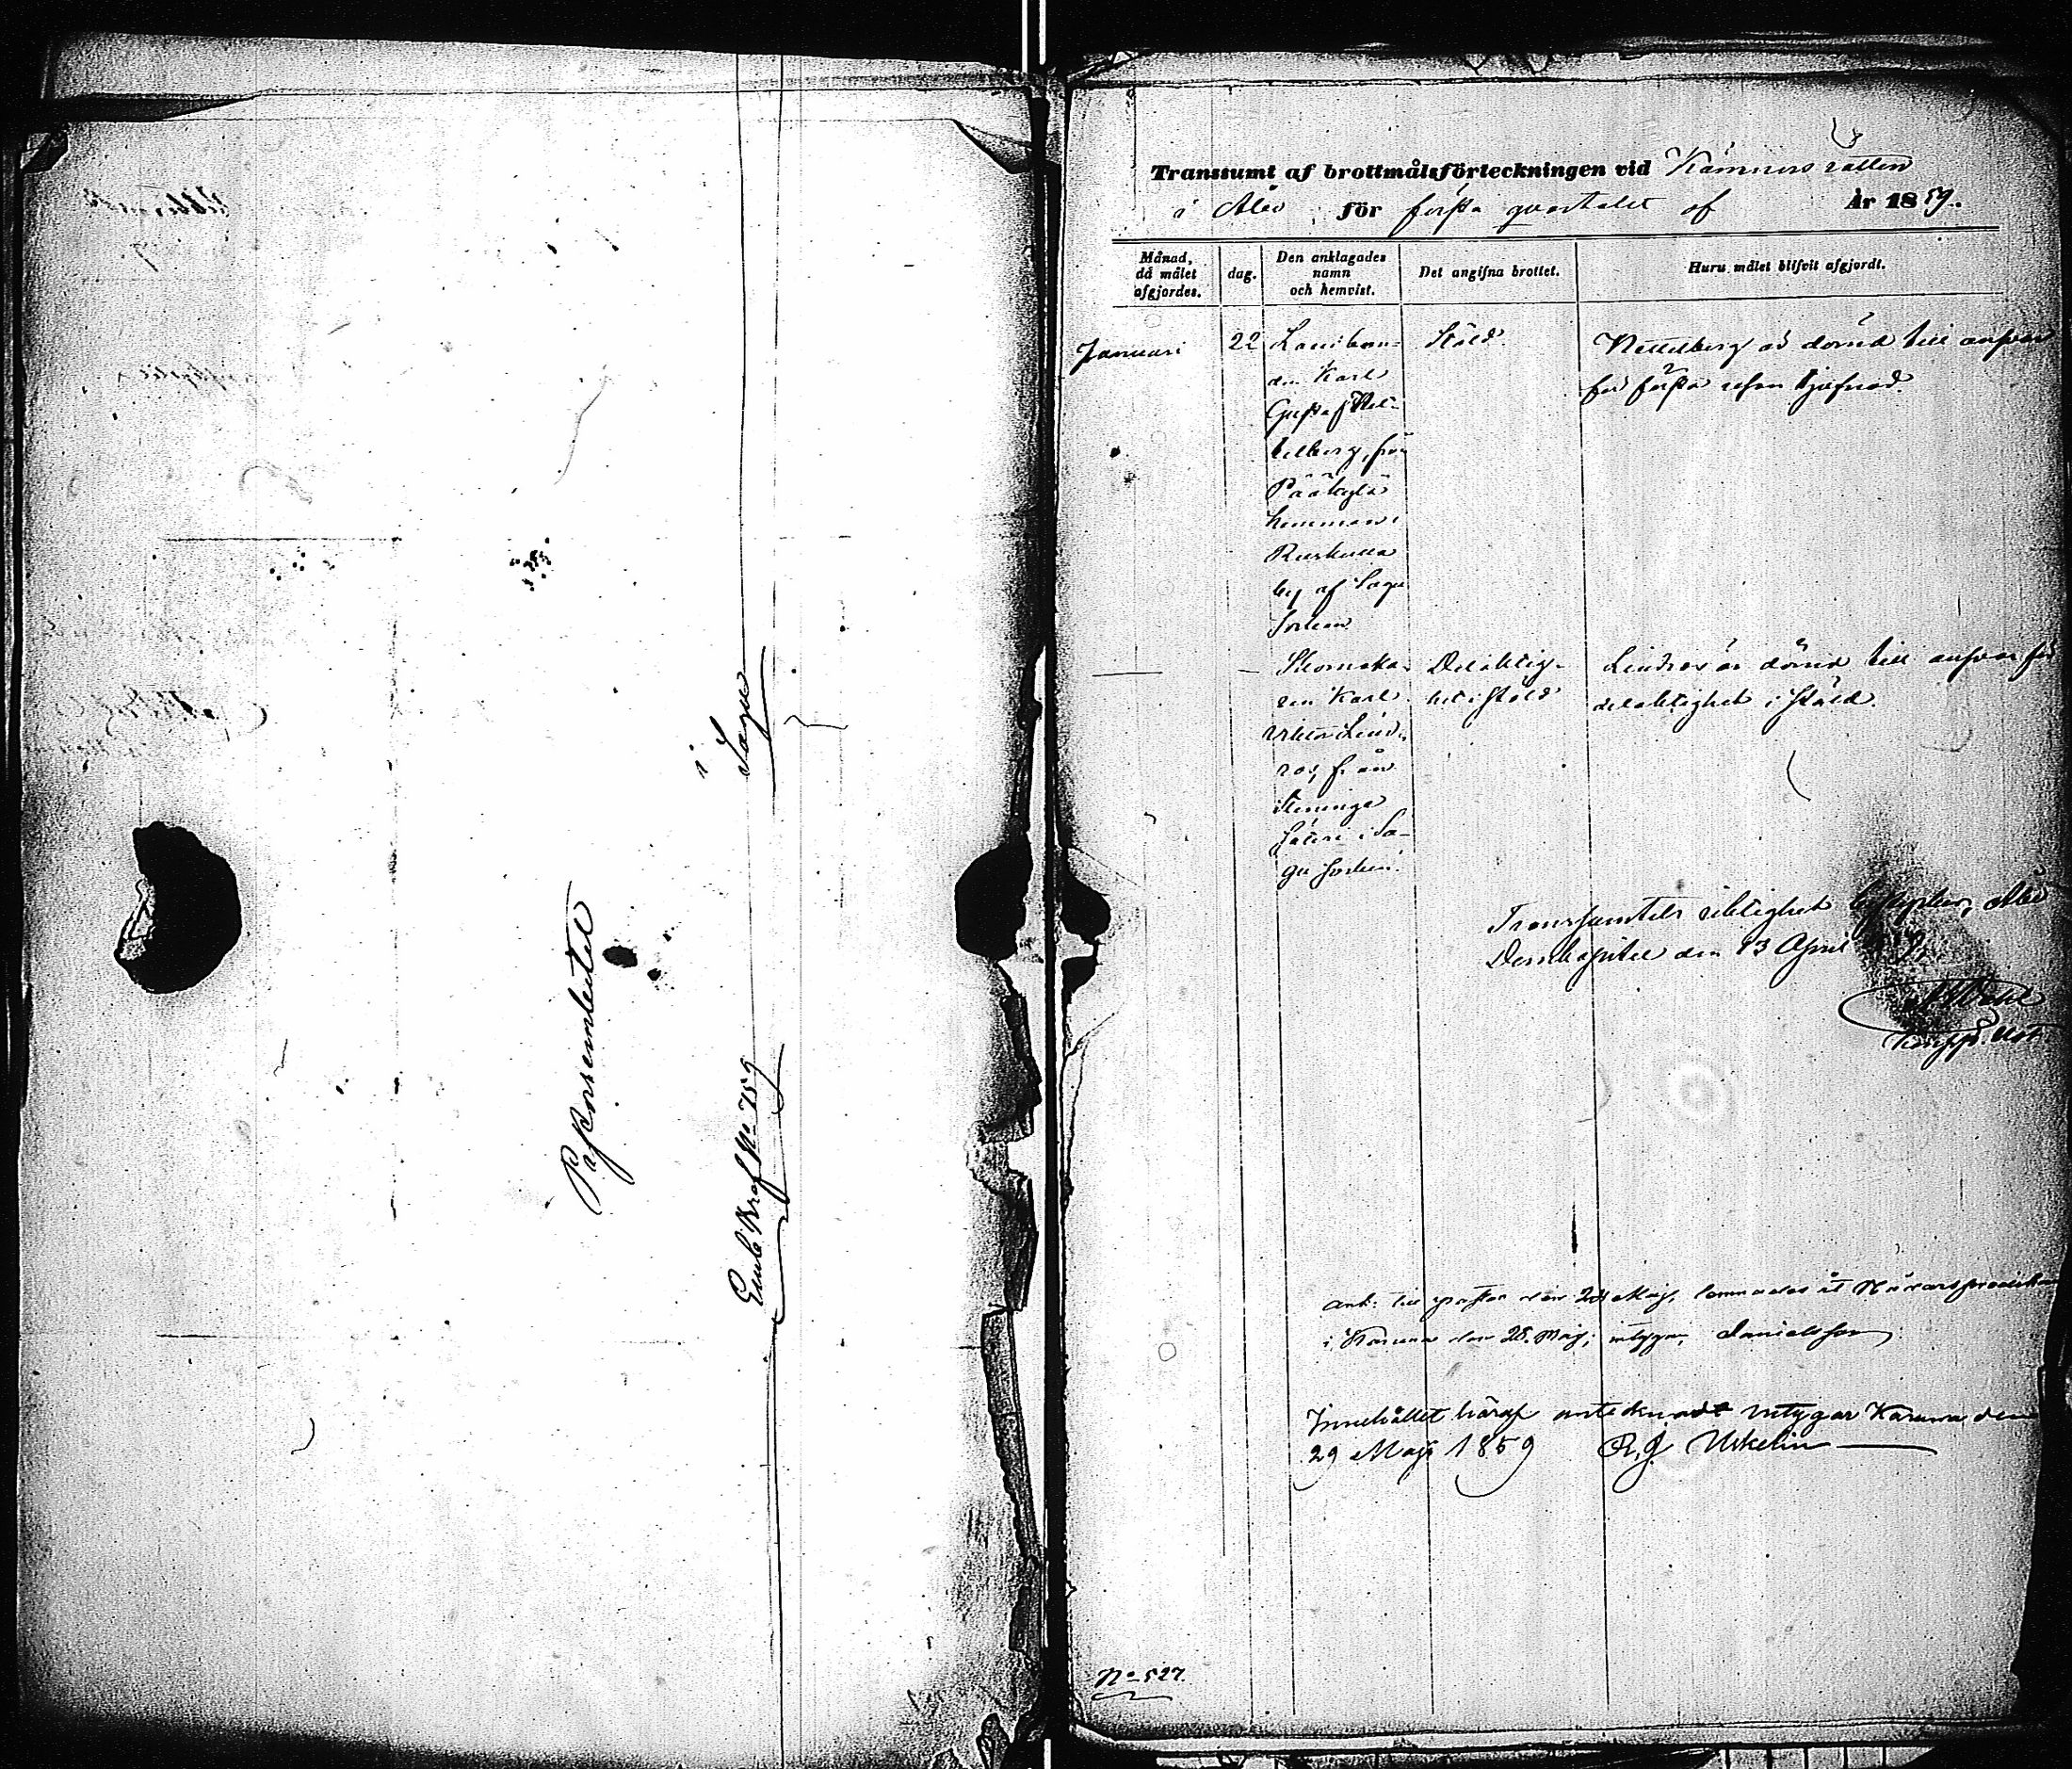 Pastorsembetet
i
Sagu
Enl. Bref No 759
Transsumt af brottmålsförteckningen vid Kämners rätten
i Åbo för första qvartalet af År 1859.
Månad,
då målet
afgjordes.
dag.
Den anklagades
namn
och hemvist.
Det angifna brottet.
Huru målet blifvit afgjordt.
Januari 22
den Karl
Gustaf Net-
telberg, från
Pääkylä
hemman i
Ruskulla
by af Sagu
Socken
Stöld.
Nettelberg är dömd till ansvar
för första resan tjufnad.
Skomaka-
ren Karl
Viktor Lind-
ros, från
Steninge
Säteri i Sa-
gu socken.
Delaktig-
het i stöld
Lindros är dömd till ansvar för
delaktighet i stöld.
Transsumtets riktighet betygar, Åbo
Domkapitel den 13 April
Ank. till pastor den 24 Maj, lemnades åt
i Karuna den 28. Maj; intygar, Danielsson
Innehållet häraf antecknadt intygar Karuna den
29 Maji 1859
No 527.